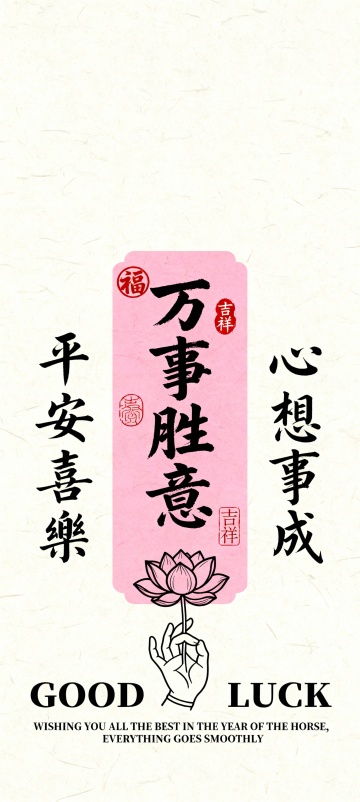 福
吉祥
万事胜意
吉祥
心想事成
平安喜樂
GOOD LUCK
WISHING YOU ALL THE BEST IN THE YEAR OF THE HORSE,
EVERYTHING GOES SMOOTHLY